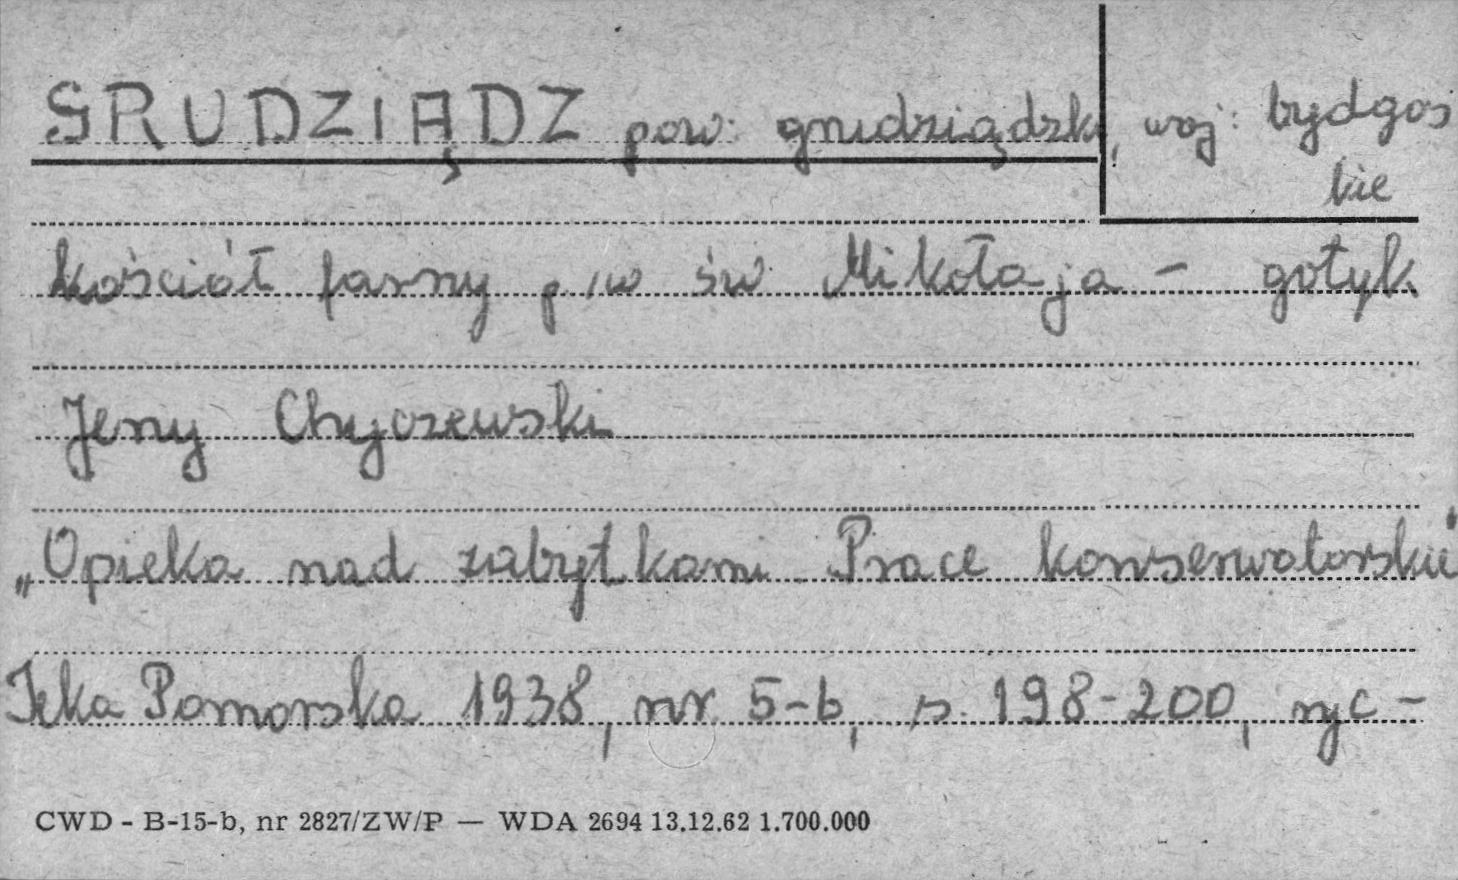 GRUDZIĄDZ pow. grudziądzki, woj: bydgos
kie
kościół farny p/w św. Mikołaja - gotyk
Jerzy Chyczewski
„Opieka nad zabytkami. Prace konserwatorskie"
Teka Pomorska 1938, nr. 5-6, s. 198-200, ryc -
CWD - B-15-b, nr 2827/ZW/P — WDA 2694 13.12.62 1.700.000